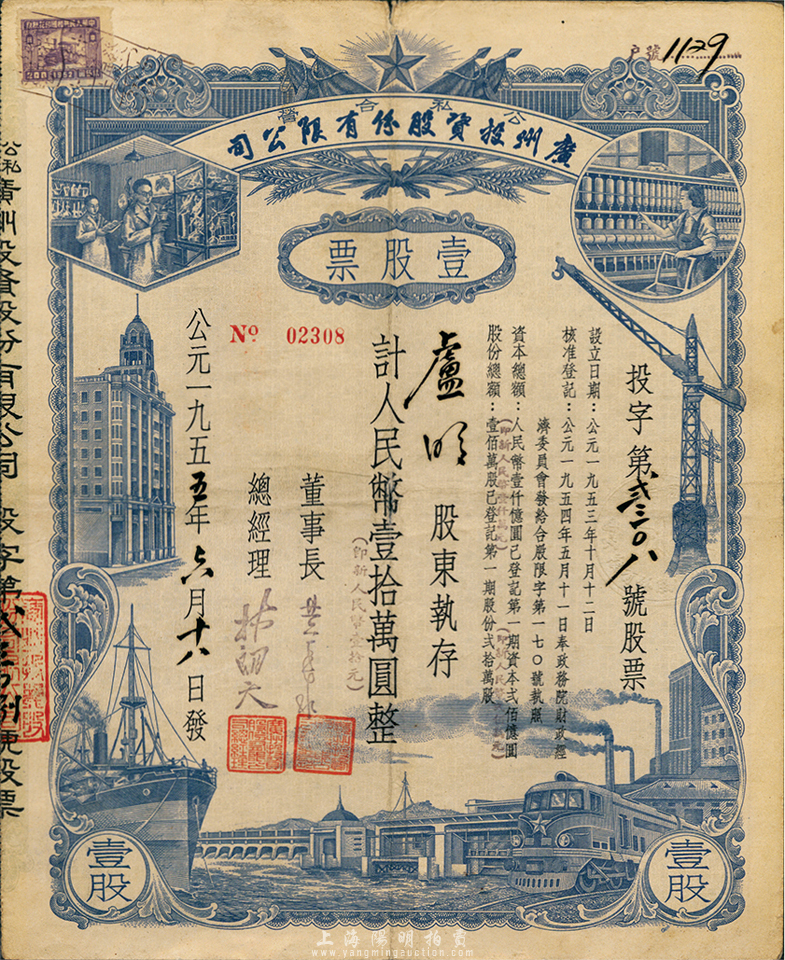 戶號 1129
公私合營
廣州投資股份有限公司
壹股票
投字第弍三〇八號股票
設立日期：公元一九五三年十月十二日
核准登記：公元一九五四年五月十一日奉政務院財政經
濟委員會發給合股限字第一七〇號執照
資本總額：人民幣壹仟億圓已登記第一期資本弍佰億圓
(即新人民幣壹仟萬元)
股份總額：壹佰萬股已登記第一期股份弍拾萬股
盧明 股東執存
計人民幣壹拾萬圓整
(即新人民幣壹拾元)
董事長
總經理
林朗天
№ 02308
公元一九五五年六月十八日發
公私
廣州投資股份有限公司 投字第 號股票
壹股
壹股
上海陽明拍賣
www.yangmingauction.com